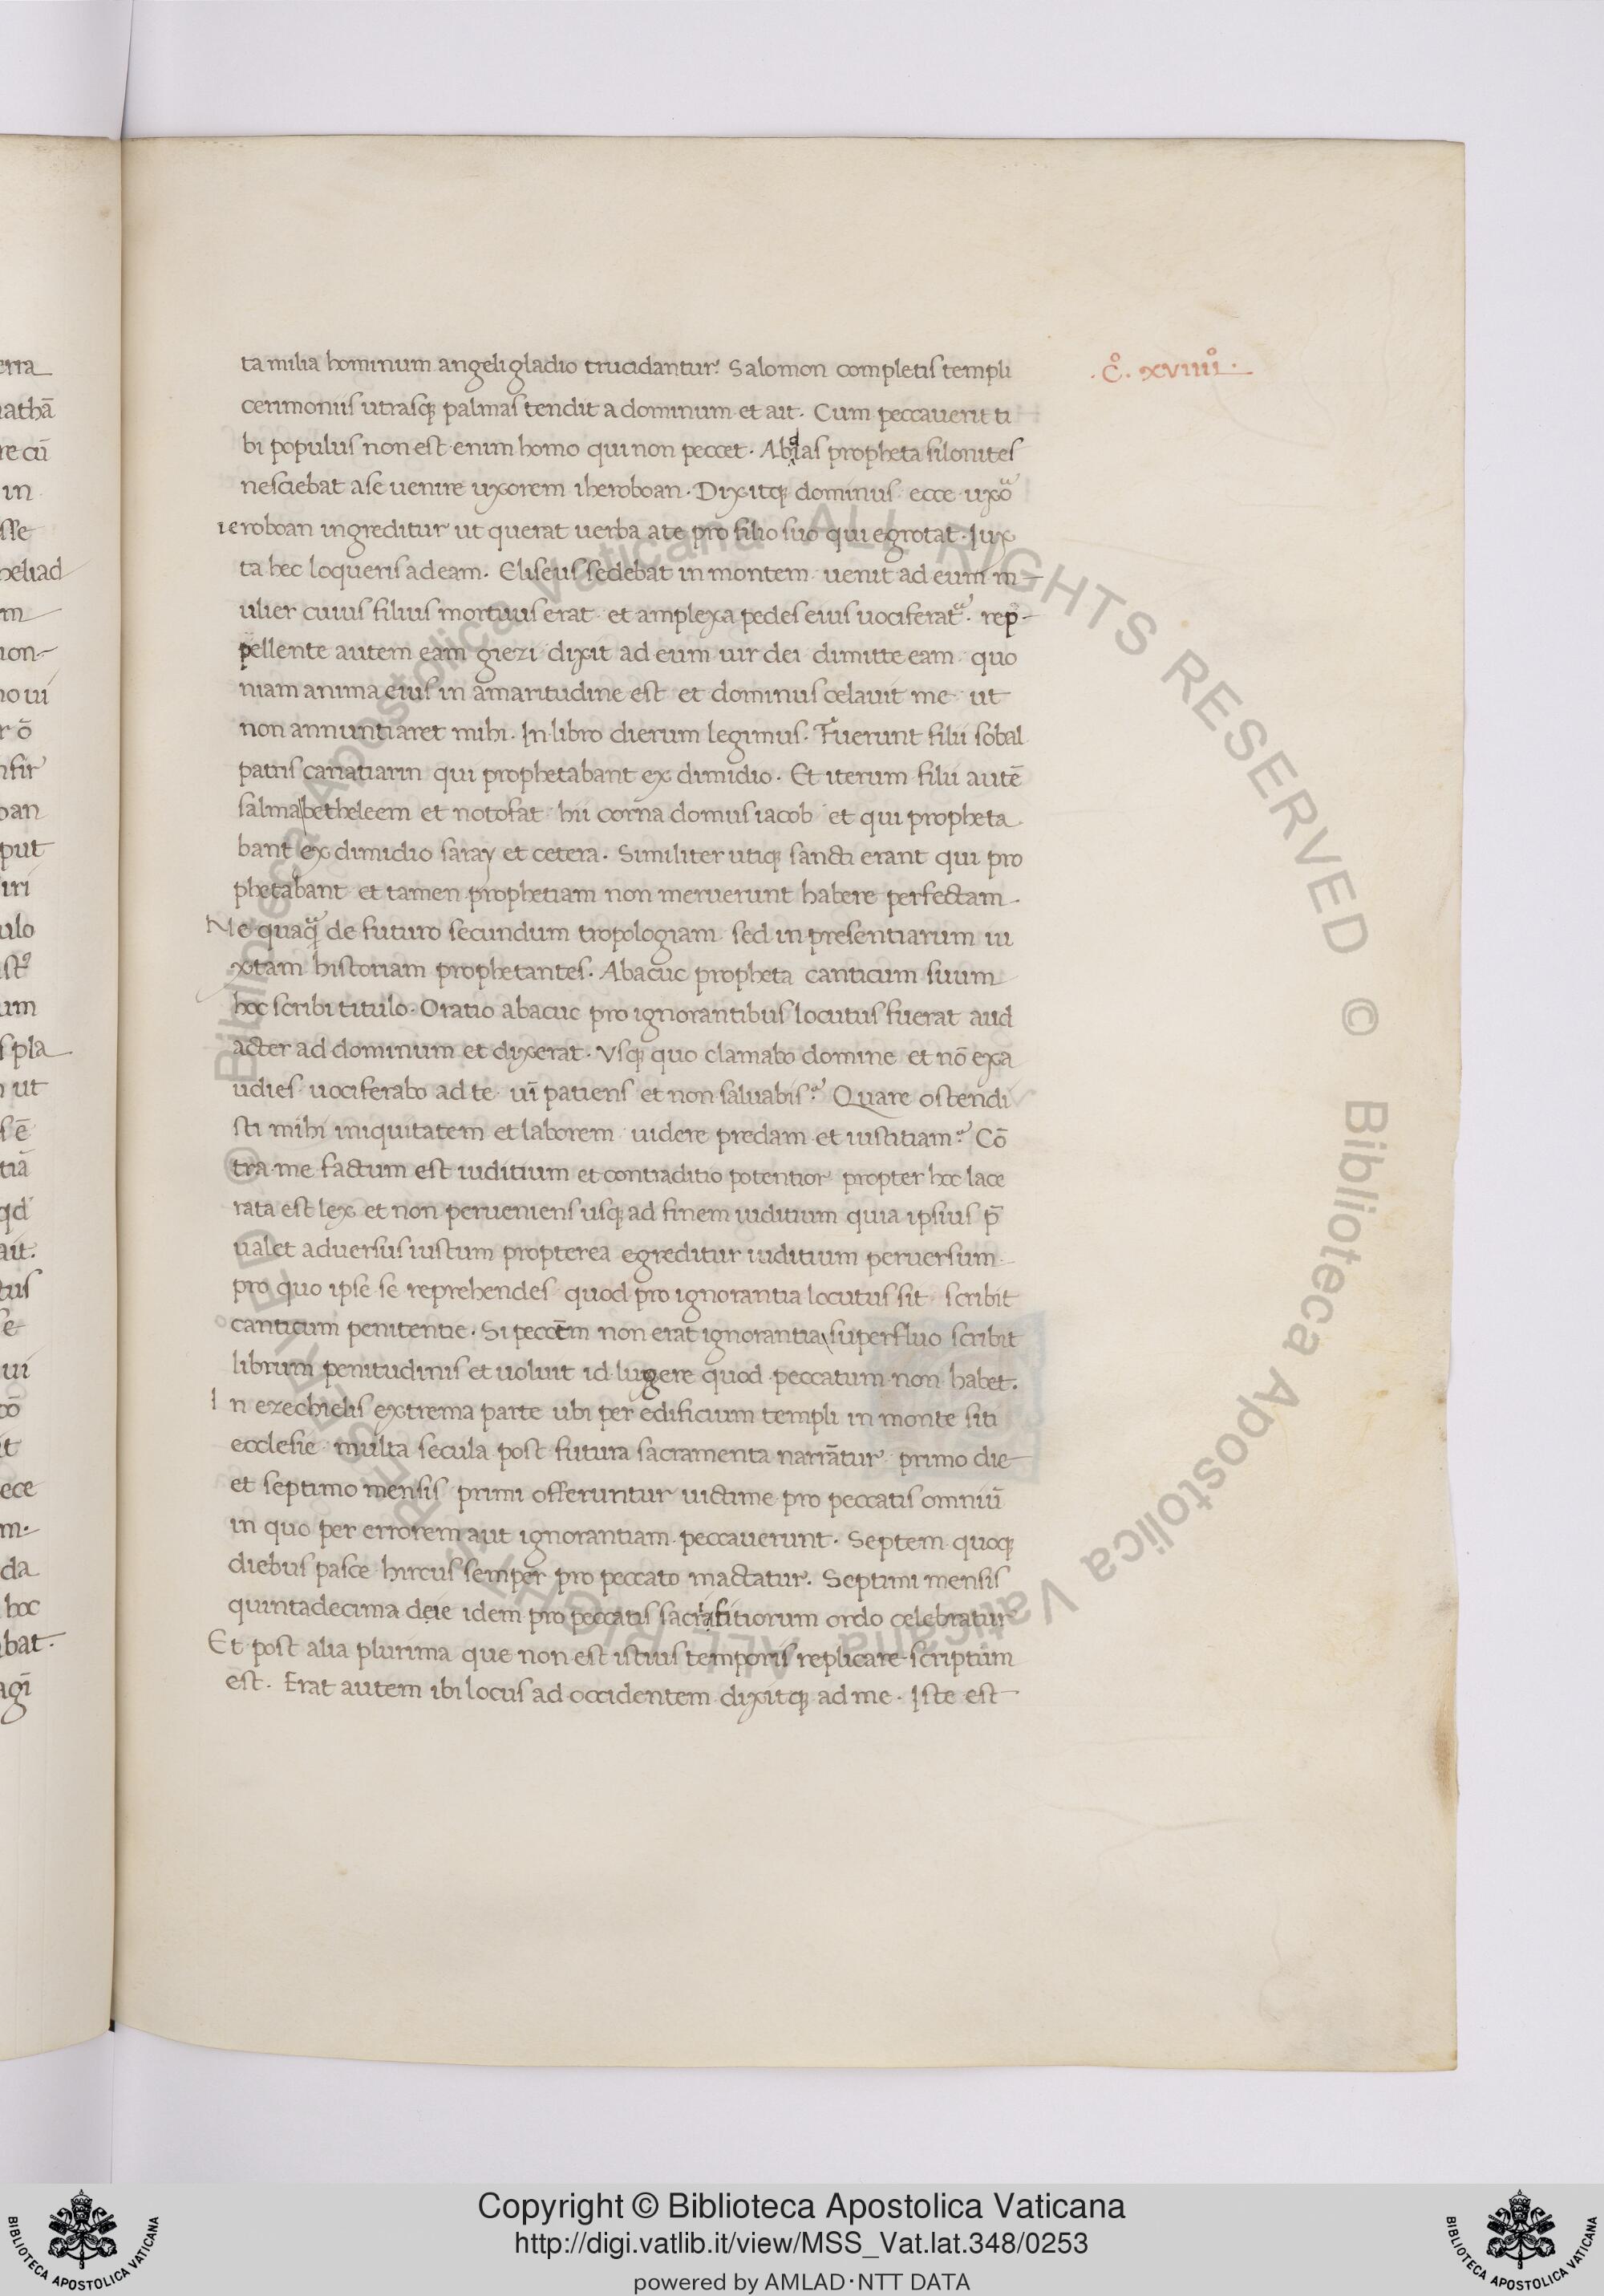 ta milia hominum angeli gladio trucidantur? Salomon completis templi
.c̊. xviiii̊.
cerimoniis utrasq; palmas tendit a dominum et ait. Cum peccauerit ti
bi populus non est enim homo qui non peccet. Abdias propheta silonites
nesciebat a se uenire uxorem iheroboan. Dixitq; dominus ecce uxoͣ
ieroboan ingreditur ut querat uerba a te pro filio suo qui egrotat. Iux
ta hec loqueris ad eam. Eliseus sedebat in montem uenit ad eum m
ulier cuius filius mortuus erat et amplexa pedes eius uociferat͛. rep
pellente autem eam giezi dixit ad eum uir dei dimitte eam quo
niam anima eius in amaritudine est et dominus celauit me ut
non annuntiaret mihi. In libro dierum legimus. Fuerunt filii sobal
patris cariatiarin qui prophetabant ex dimidio. Et iterum filii autē
salma betheleem et notofat hii corna domus iacob et qui propheta
bant ex dimidio saray et cetera. Similiter utiq; sancti erant qui pro
phetabant et tamen prophetiam non meruerunt habere perfectam.
Ne quaqͣ de futuro secundum tropologiam sed in presentiarum iu
xtam historiam prophetantes. Abacuc propheta canticum suum
hoc scribi titulo. Oratio abacuc pro ignorantibus locutus fuerat aud
acter ad dominum et dixerat. Vsq; quo clamabo domine et nō exa
udies uociferabo ad te uī patiens et non saluabis? Quare ostendi
sti mihi iniquitatem et laborem uidere predam et iustitiam? Cō
tra me factum est iuditium et contraditio potentior propter hoc lace
rata est lex et non perueniens usq; ad finem iuditium quia ipsius p̄
ualet aduersus iustum propterea egreditur iuditium peruersum
pro quo ipse se reprehendes quod pro ignorantia locutus sit scribit
canticum penitentie. Si peccīm non erat ignorantia superfluo scribit
librum penitudinis et uoluit id lugere quod peccatum non habet.
In ezechielis extrema parte ubi per edificium templi in monte siti
ecclesie multa secula post futura sacramenta narrātur primo die
et septimo mensis primi offeruntur uictime pro peccatis omniū
in quo per errorem aut ignorantiam peccauerunt. Septem quoq;
diebus pasce hircus semper pro peccato mactatur. Septimi mensis
quintadecima deie idem pro peccatis sacrifitiorum ordo celebratur
Et post alia plurima que non est istius temporis replicare scriptum
est. Erat autem ibi locus ad occidentem dixitq; ad me. Iste est
Copyright © Biblioteca Apostolica Vaticana
http://digi.vatlib.it/view/MSS_Vat.lat.348/0253
powered by AMLAD·NTT DATA
BIBLIOTECA APOSTOLICA VATICANA
BIBLIOTECA APOSTOLICA VATICANA